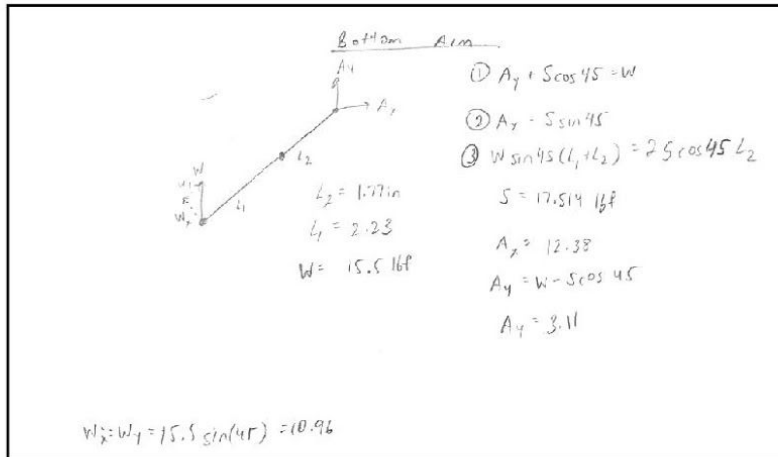 Bottom Arm
Ay
Ax
L2
W
L1
L2 = 1.77in
L1 = 2.23
W = 15.5 lbf
① Ay + Scos45 = W
② Ax - Ssin45
③ Wsin45(L1+L2) = 2Scos45 L2
S = 17.514 lbf
Ax = 12.38
Ay = W - Scos45
Ay = 3.11
Wx = Wy = 15.5 sin(45) = 10.96